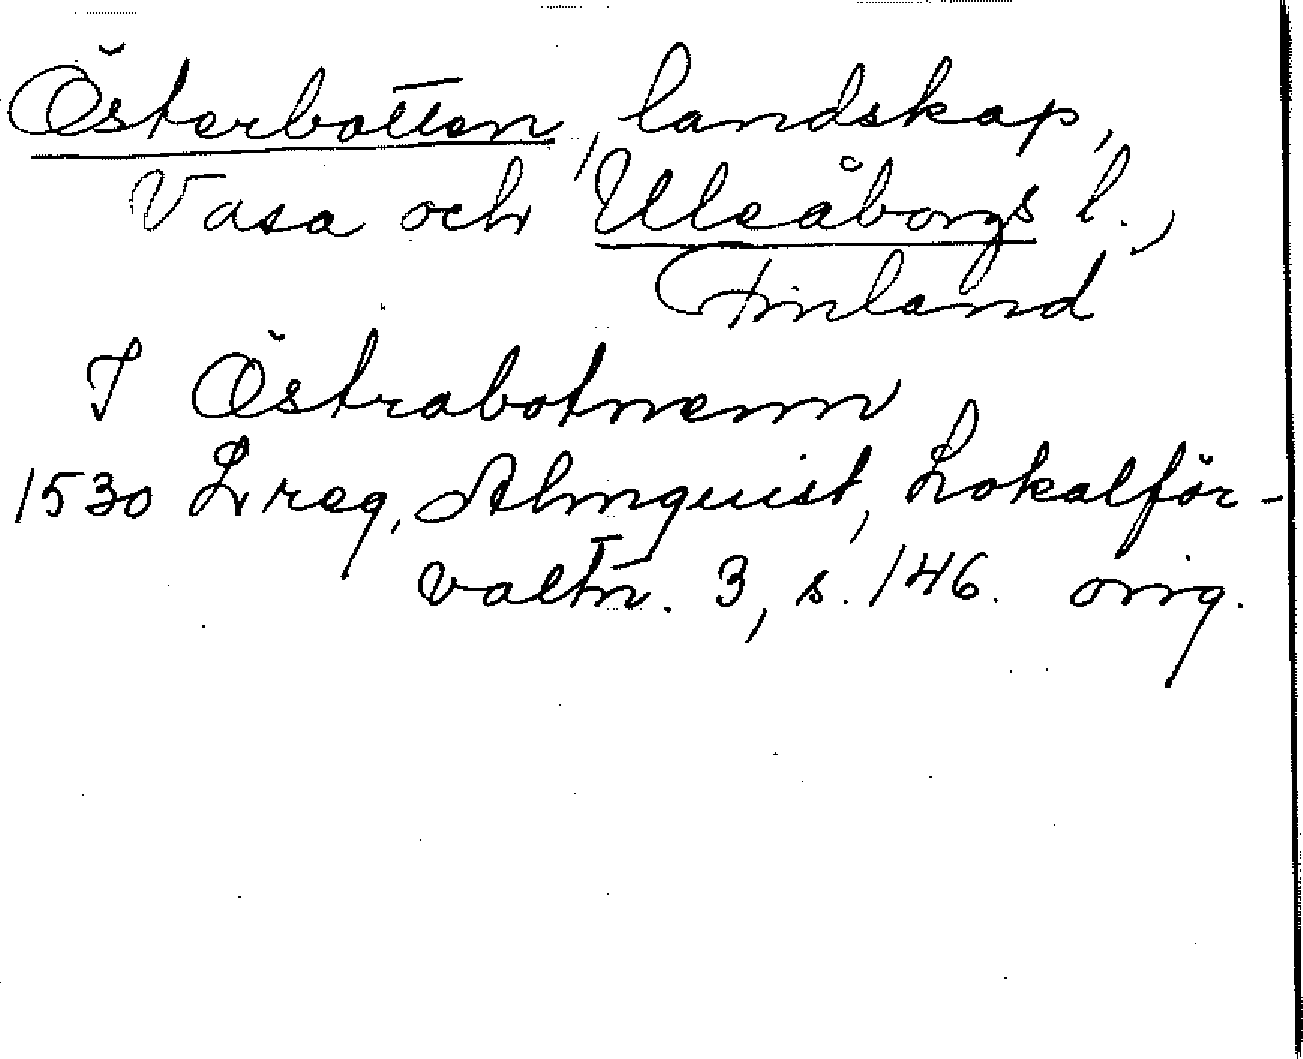 Österbotten, landskap,
Vasa och Uleåborgs l.,
Finland
I Östrabotnenn
1530 Lreg, Almquist, Lokalför-
valtn. 3, s. 146. orig.